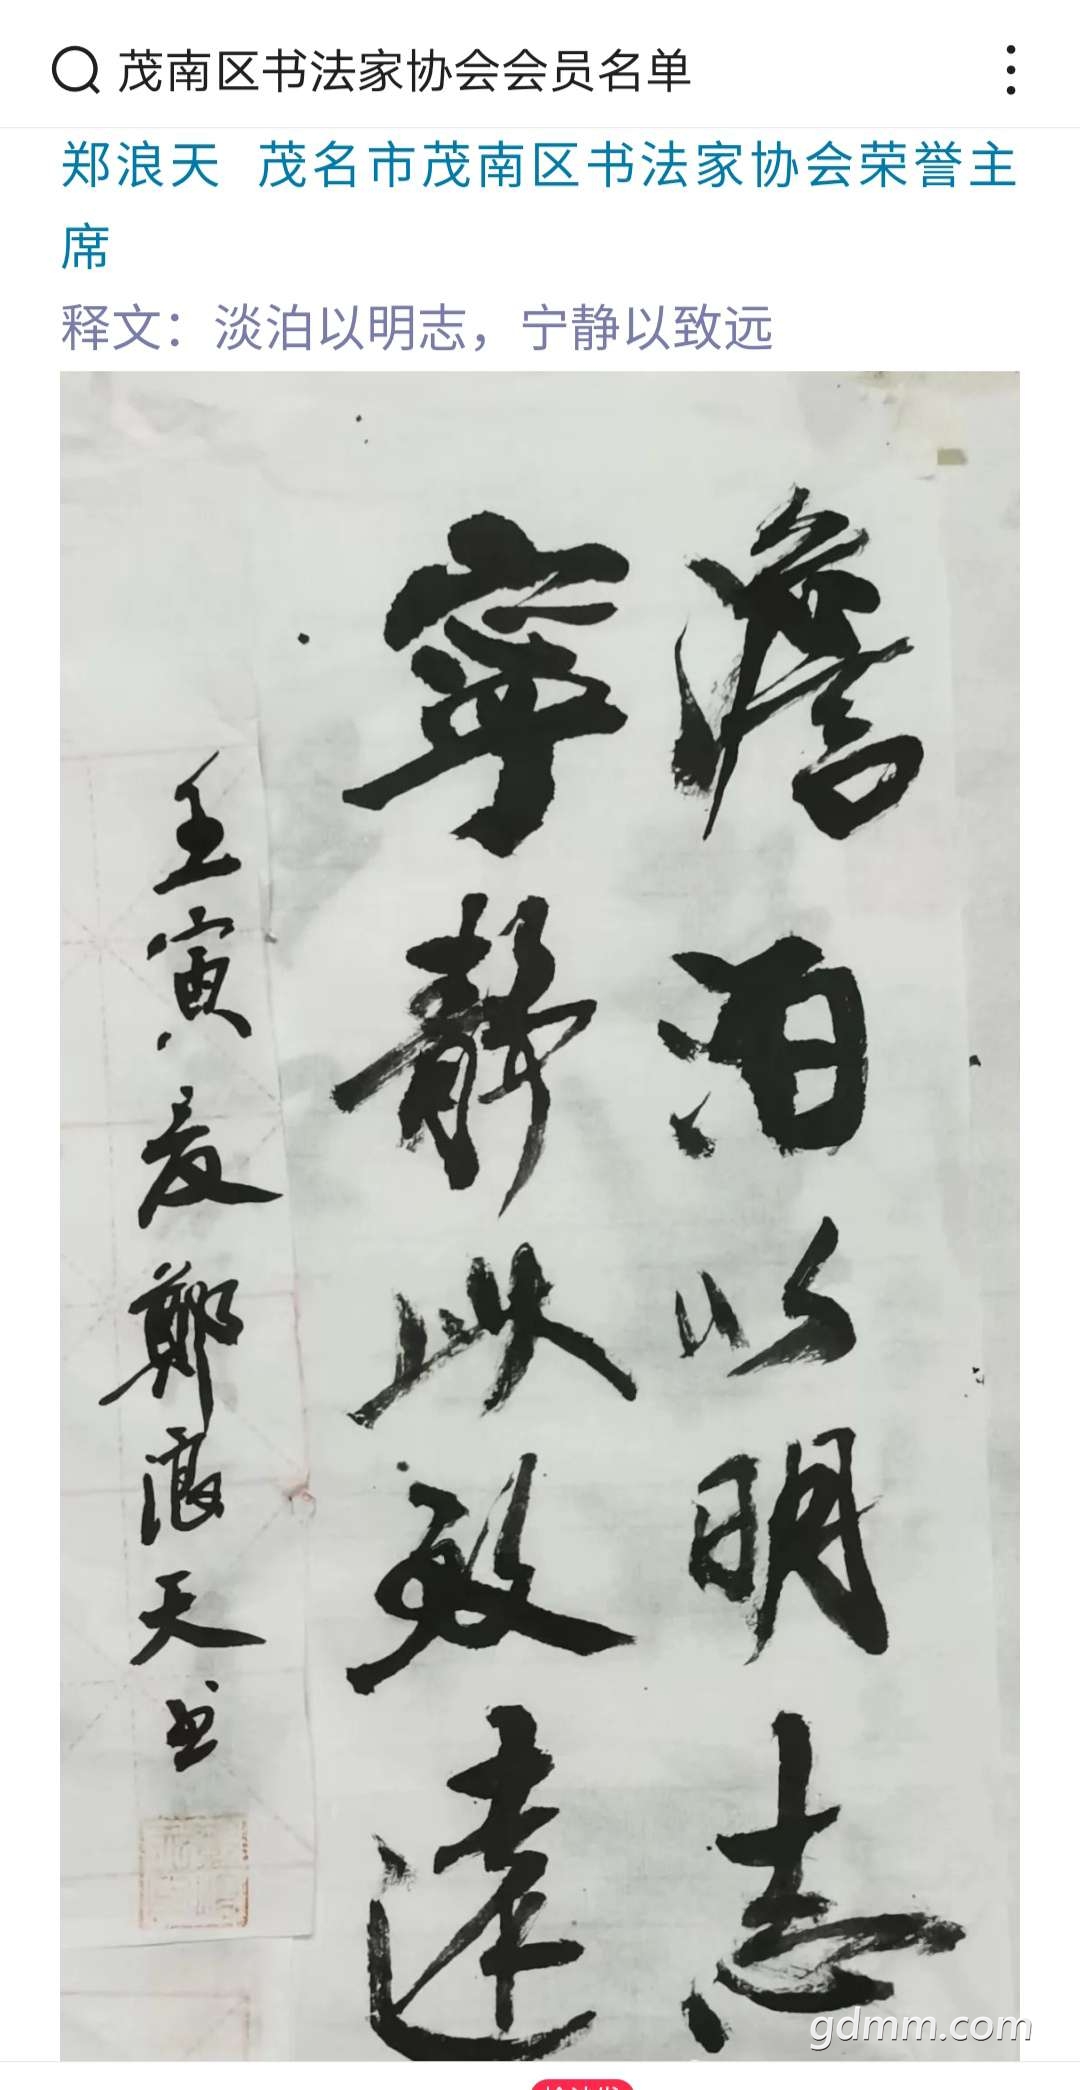 茂南区书法家协会会员名单
郑浪天 茂名市茂南区书法家协会荣誉主
席
释文：淡泊以明志，宁静以致远
澹泊以明志
寧靜以致遠
壬寅夏鄭浪天书
gdmm.com